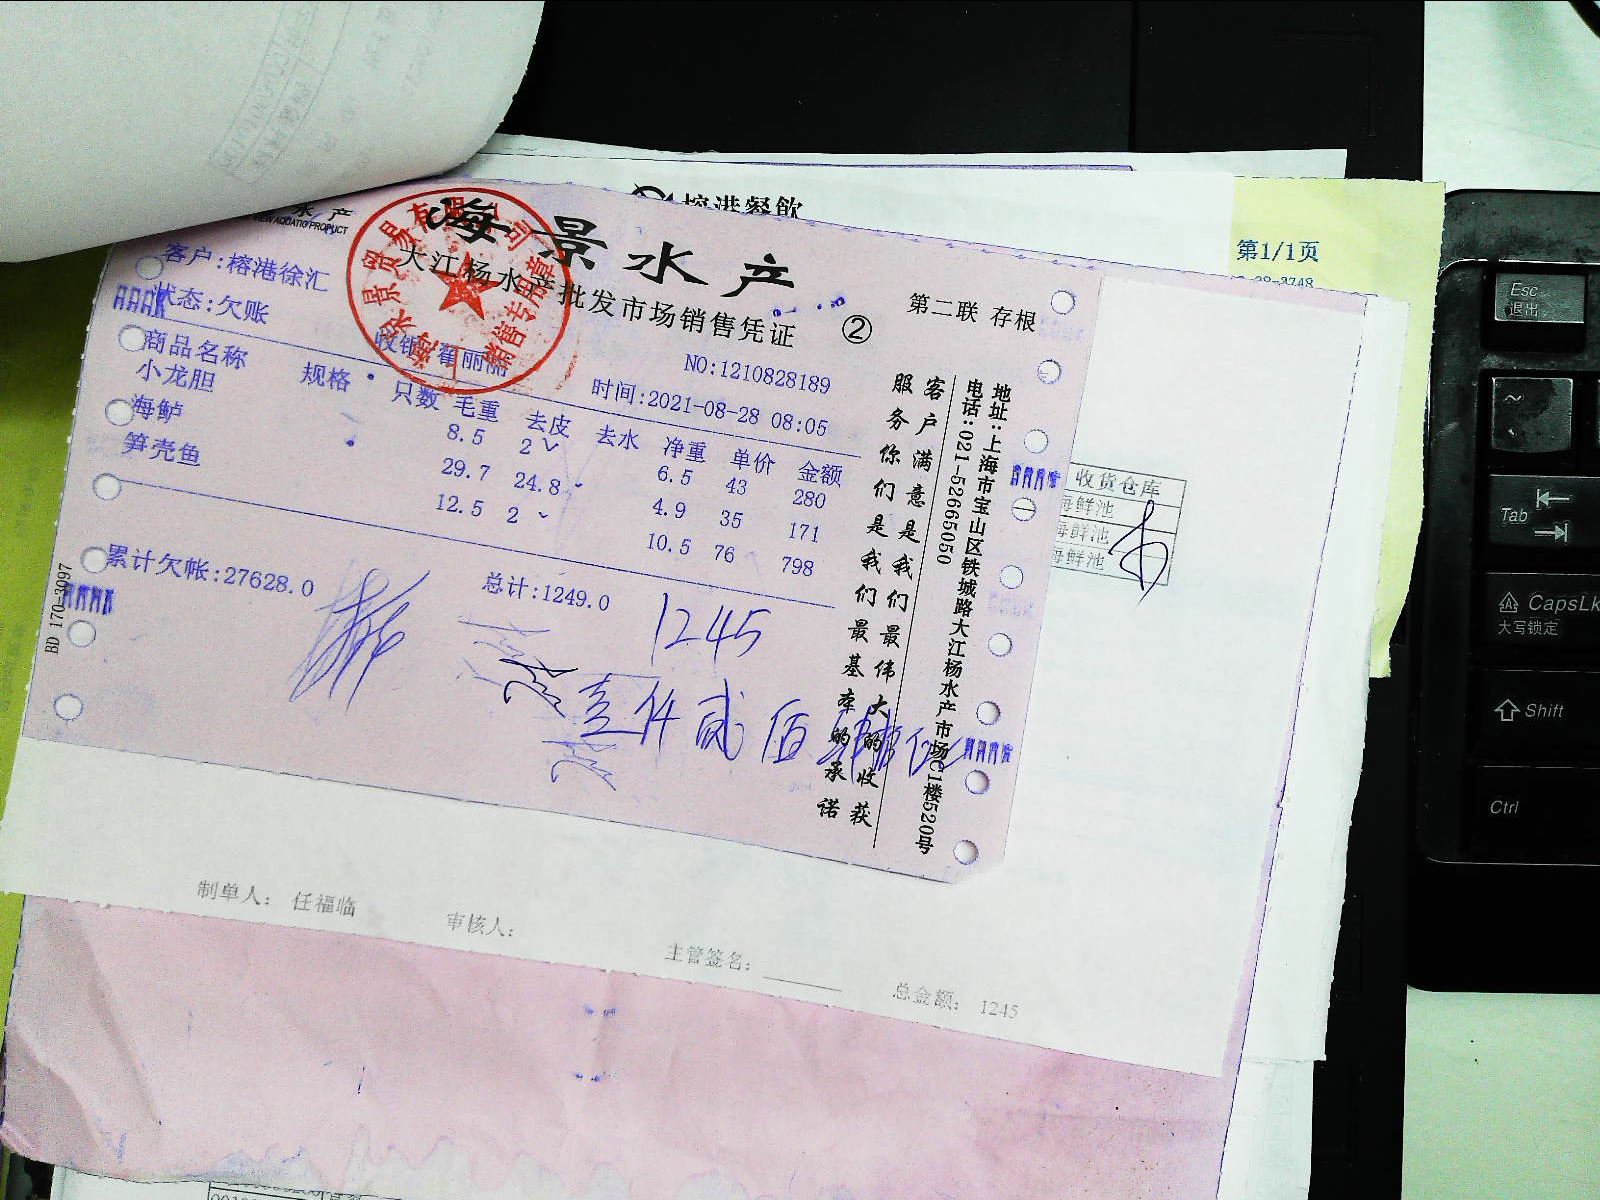 榕港餐飲
第1/1页
水 产
海景水产
大江杨水产批发市场销售凭证
② 第二联 存根
客户:榕港徐汇
状态:欠账
NO:1210828189
时间:2021-08-28 08:05
商品名称 规格 只数 毛重 去皮 去水 净重 单价 金额
小龙胆 8.5 2 6.5 43 280
海鲈 29.7 24.8 4.9 35 171
笋壳鱼 12.5 2 10.5 76 798
累计欠帐:27628.0 总计:1249.0
1245
壹仟贰佰
BD 170-3097
客户满意是我们最伟大的收获
服务你们是我们最基本的承诺
地址:上海市宝山区铁城路大江杨水产市场C1楼520号
电话:021-52665050
销售专用章
收货仓库
海鲜池
海鲜池
海鲜池
制单人: 任福临
审核人:
主管签名:
总金额: 1245
Esc
退出
~
Tab
CapsLk
大写锁定
Shift
Ctrl